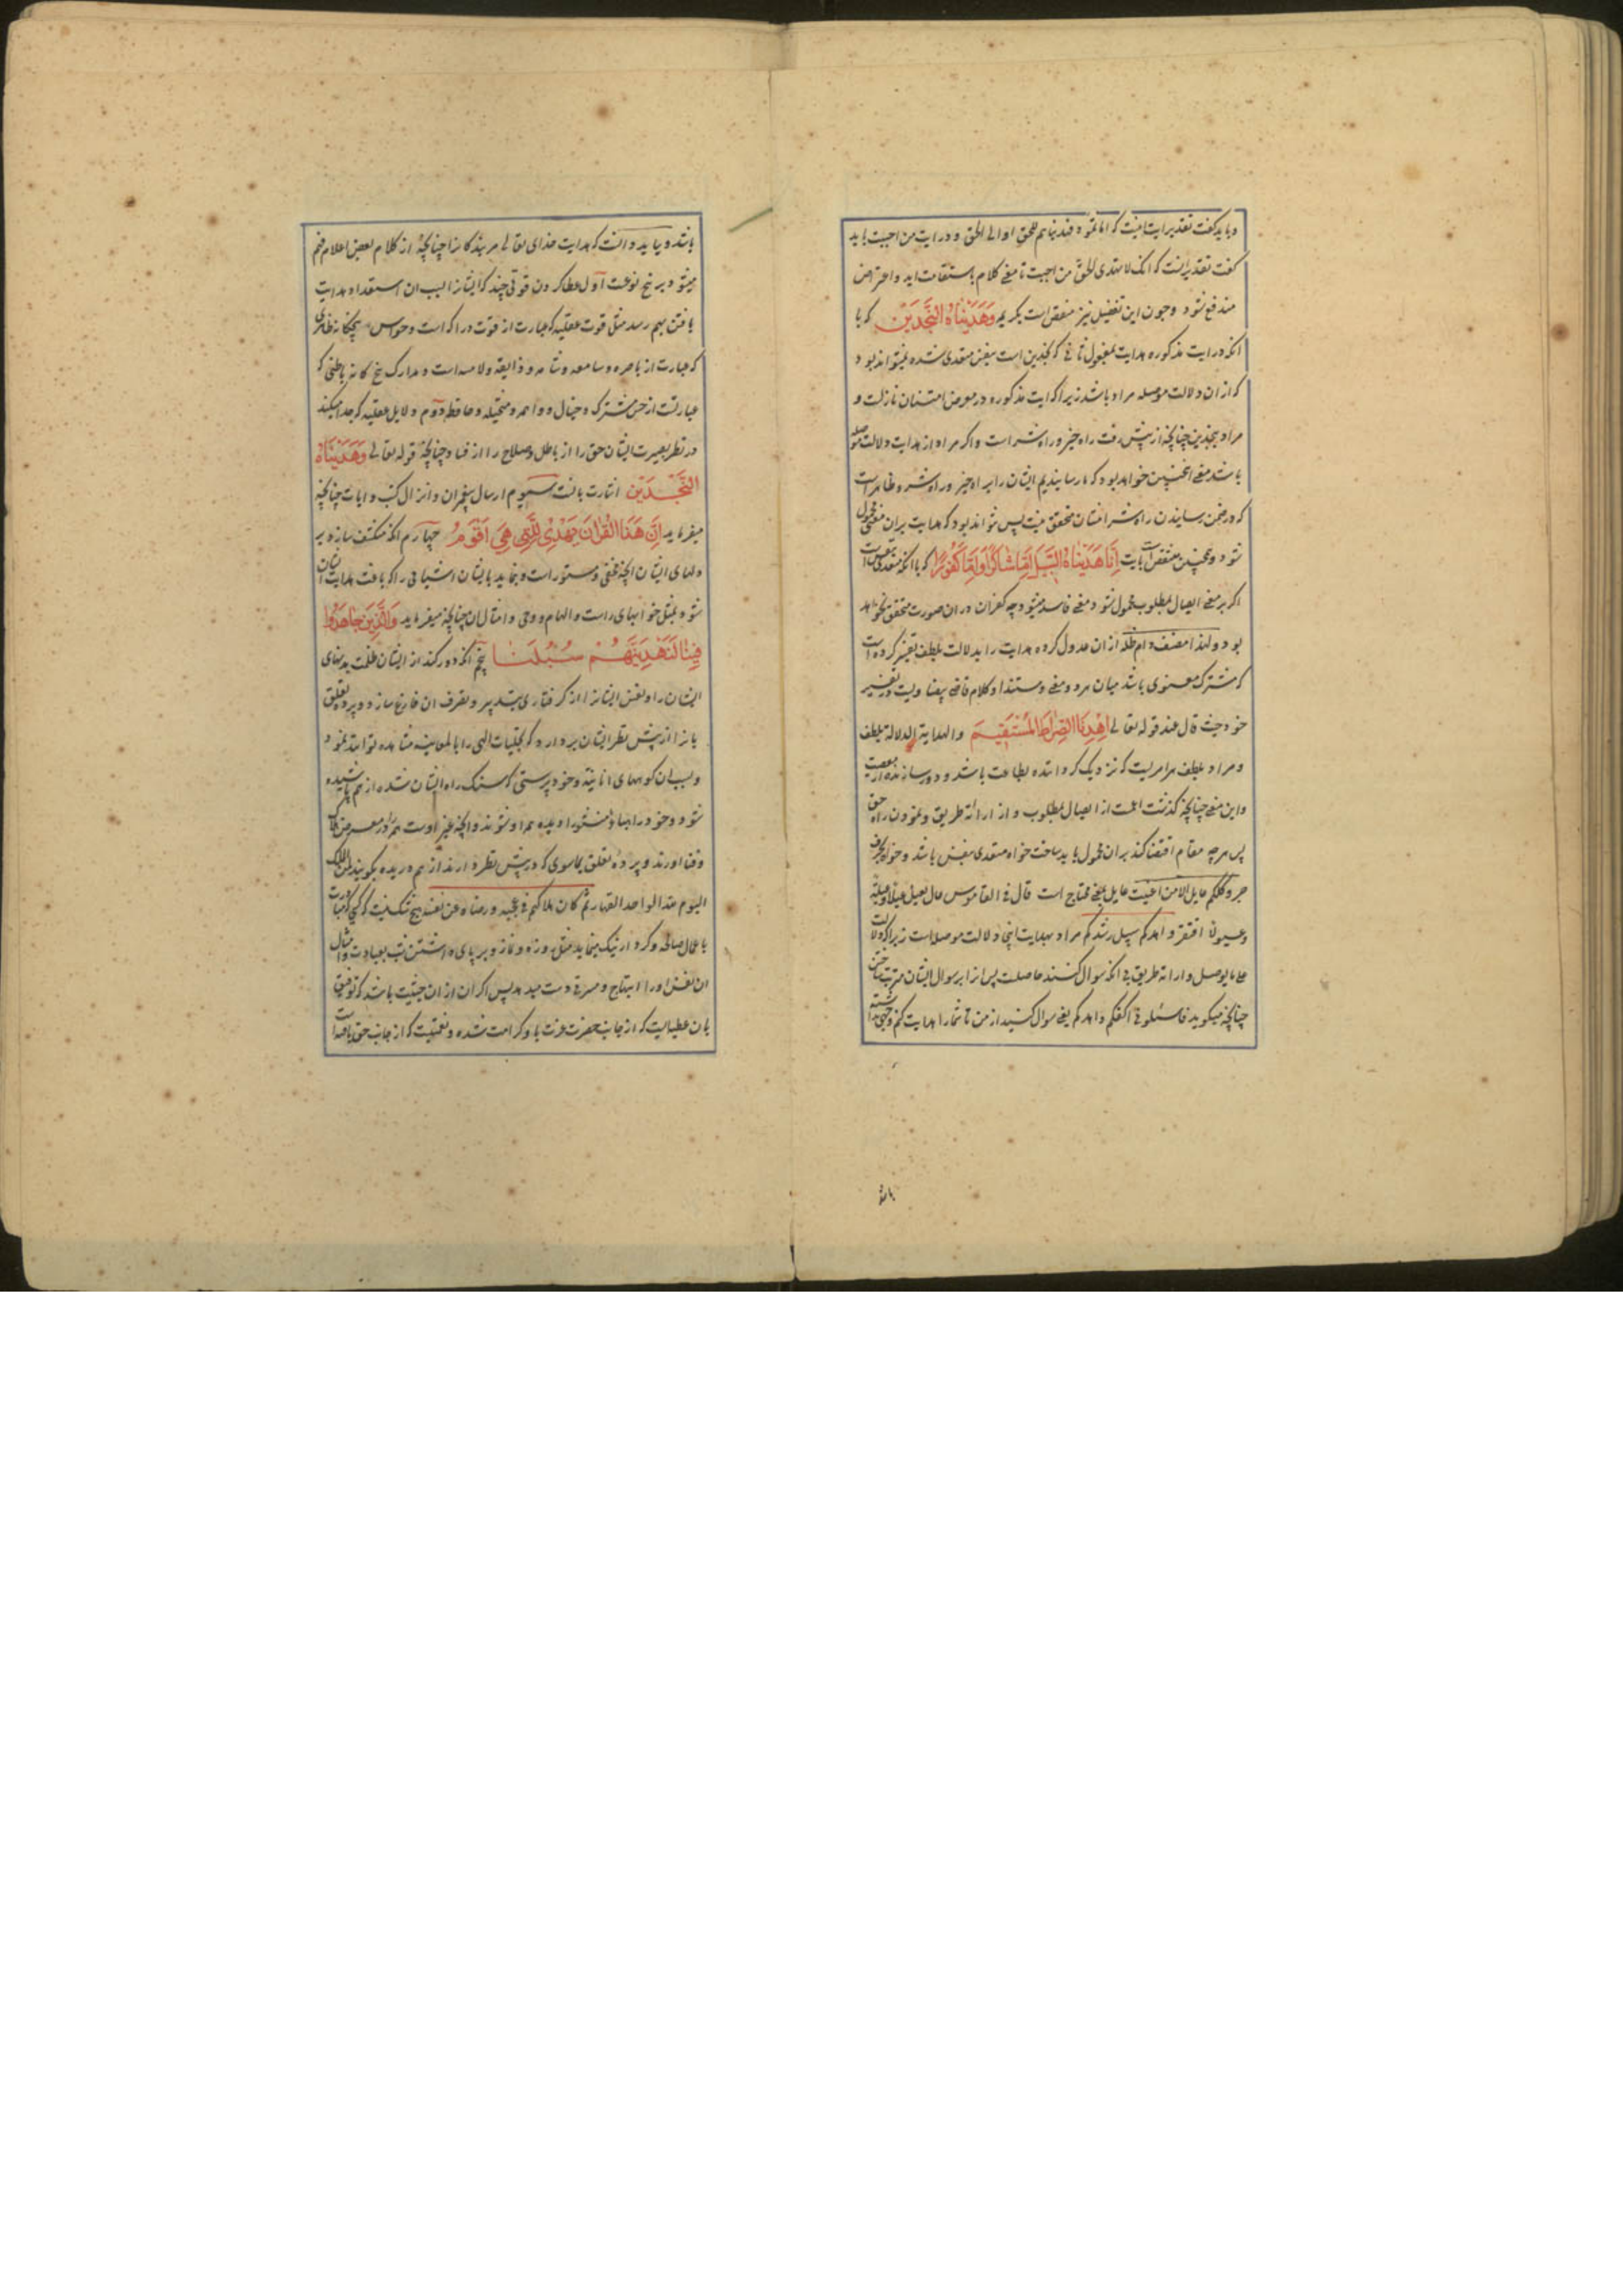 و باید گفت تقدیر ایت اینست که اما ثمود فهدیناهم للحق او الی الحق و در ایت من احببت باید
گفت تقدیر انست که انک لا تهتدی للحق من احببت تا معنی کلام باستقامت اید و اعتراض
مندفع شود و چون این تفضیل نیز منتقض است بکریمه وَهَدَیْنَاهُ النَّجْدَیْنِ که با
انکه در ایت مذکوره هدایت بمفعول ثانی که نجدین است بنفس متعدی شده نمیتواند بود
که از ان دلالت موصله مراد باشد زیرا که ایت مذکوره در معرض امتنان نازلست و
مراد بنجدین چنانچه از پیش رفت راه خیر و راه شر است و اگر مراد از هدایت دلالت موصله
باشد معنی انچنین خواهد بود که ما رسانیدیم ایشان را براه خیر و راه شر و ظاهر است
که در ضمن رسانیدن راه شر امتنان متحقق نیست پس نتواند بود که هدایت بران معنی محمول
شود و همچنین منتقض است بایت اِنَّا هَدَیْنَاهُ السَّبِیلَ اِمَّا شَاکِرًا وَاِمَّا کَفُورًا که با انکه متعدی بنفس است
اگر بر معنی ایصال بمطلوب محمول شود معنی فاسد میشود چه کفران در ان صورت متحقق نخواهد
بود و لهذا مصنف دام ظله از ان عدول کرده هدایت را بدلالت بلطف تفسیر کرده است
که مشترک معنوی باشد میان هر دو معنی و مستندا و کلام قاضی بیضاویست در تفسیر
خود حیث قال عند قوله تعالی اِهْدِنَا الصِّرَاطَ الْمُسْتَقِیمَ والهدایة الدلالة بلطف
و مراد بلطف هر امریست که نزدیک گرداننده بطاعت باشد و دور سازنده از معصیت
و این معنی چنانچه گذشت اعم است از ایصال بمطلوب و از ارائة طریق و نمودن راه حق
پس هر چه مقام اقتضا کند بران محمول باید ساخت خواه متعدی بنفس باشد و خواه بحرف
جر و کلکم عایل الا من اغنیت عایل بمعنی محتاج است قال فی القاموس عال یعیل عیلا و عیلة
و عیولا افتقر و اهدکم سبیل رشدکم مراد بهدایت اینجا دلالت موصله است زیرا که دلالت
علی ما یوصل و ارائة طریق بی انکه سوال کنند حاصلست پس انرا بر سوال ایشان مترتب ساختن
چنانچه میگوید فاسئلونی اکفکم و اهدکم یعنی سوال کنید از من تا شمارا هدایت کنم وجهی نداشته
باشد
باشد و بباید دانست که هدایت خدای تعالی مر بندگانرا چنانچه از کلام بعض اعلام فهم
میشود بر پنج نوعست اول عطا کردن قوتی چند که ایشانرا بسبب ان استعداد هدایت
یافتن بهم رسد مثل قوت عقلیه که عبارت از قوت دراکه است و حواس پنجگانه ظاهری
که عبارت از باصره و سامعه و شامه و ذایقه و لامسه است و مدارک پنج گانه باطنی که
عبارتست از حس مشترک و خیال و واهمه و متخیله و حافظه دوم دلایل عقلیه که جدا میکند
در نظر بصیرت ایشان حق را از باطل و صلاح را از فساد چنانچه قوله تعالی وَهَدَیْنَاهُ
النَّجْدَیْنِ اشارت بانست سیوم ارسال پیغمبران و انزال کتب و ایات چنانچه
میفرماید اِنَّ هَذَا الْقُرْاٰنَ یَهْدِی لِلَّتِی هِیَ اَقْوَمُ چهارم انکه منکشف سازد بر
دلهای ایشان انچه مخفی و مستور است و بنماید بایشان اشیائی را که یافت هدایت ایشان
شود بمثل خوابهای راست و الهام و وحی و امثال ان چنانچه میفرماید وَالَّذِینَ جَاهَدُوا
فِینَا لَنَهْدِیَنَّهُمْ سُبُلَنَا پنجم انکه دور کند از ایشان ظلمت بدنهای
ایشان را و نفس ایشانرا از گرفتاری بتدبیر و تصرف ان فارغ سازد و پرده تعلق
بانرا از پیش نظر ایشان بردارد که تجلیات الهی را بالمعاینه مشاهده توانند نمود
و بسبب ان کوههای انانیة و خود پرستی که سنک راه ایشان شده از هم پاشیده
شود و خود را هباءً منثورا دیده همراو شوند و انچه غیر اوست همه را در معرض هلاک
و فنا اورند و پرده تعلق بماسوی که در پیش نظر دارند از هم دریده بگویند لمن الملک
الیوم لله الواحد القهار ثم کان هلاکهم فی محبته و رضاه عن نفسه هیچ شک نیست که کسی که مباشرت
باعمال صالحه و کردار نیک مینماید مثل روزه و نماز و برپای داشتن شب بعبادت و امثال
ان نفس او را ابتهاج و مسرتی دست میدهد پس اگر ان از ان حیثیت باشد که توفیق
بان عطیه‌ایست که از جانب حضرت عزت باو کرامت شده و نعمتیست که از جانب حق یافته است